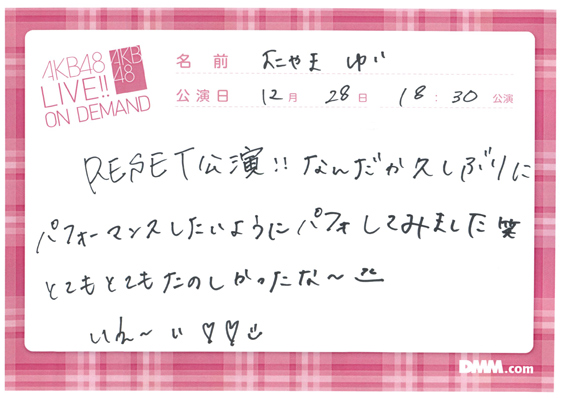 AKB48
LIVE!!
ON DEMAND
AKB
48
名前 よこやま ゆい
公演日 12月 28日 18:30 公演
RESET公演!! なんだか久しぶりに
パフォーマンスしたいようにパフォしてみました笑
とてもとてもたのしかったな〜
いぇ〜い♡♡
DMM.com